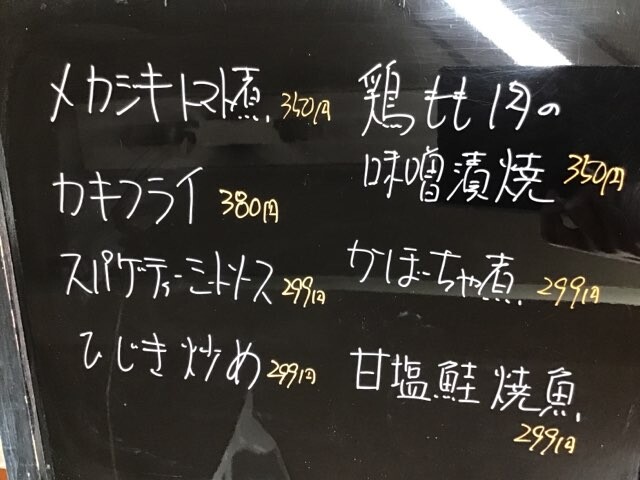 メカジキトマト煮 350円
カキフライ 380円
スパゲティーミートソース 299円
ひじき炒め 299円
鶏もも肉の
味噌漬焼 350円
かぼーちゃ煮 299円
甘塩鮭焼魚
299円